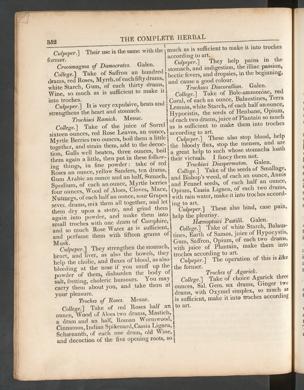 352
THE COMPLETE HERBAL
Culpeper.] Their use is the same with the
former.
Crocomagma of Damocrates. Galen.
College.] Take of Saffron an hundred
drams, red Roses, Myrrh, of each fifty drams,
white Starch, Gum, of each thirty drams,
Wine, so much as is sufficient to make it
into troches.
Culpeper.] It is very expulsive, heats and
strengthens the heart and stomach.
Trochisci Ramich. Mesue.
College.] Take of the juice of Sorrel
sixteen ounces, red Rose Leaves, an ounce,
Myrtle Berries two ounces, boil them a little
together, and strain them, add to the decoc-
tion, Galls well beaten, three ounces, boil
them again a little, then put in these follow-
ing things, in fine powder: take of red
Roses an ounce, yellow Sanders, ten drams,
Gum Arabic an ounce and an half, Sumach,
Spodium, of each an ounce, Myrtle berries
four ounces, Wood of Aloes, Cloves, Mace,
Nutmegs, of each half an ounce, sour Grapes
seven drams, mix them all together, and let
them dry upon a stone, and grind them
again into powder, and make them into
small troches with one dram of Camphire,
and so much Rose Water as is sufficient,
and perfume them with fifteen grains of
Musk.
Culpeper.] They strengthen the stomach,
heart, and liver, as also the bowels, they
help the cholic, and fluxes of blood, as also
bleeding at the nose if you snuff up the
powder of them, disburden the body of
salt, fretting, choleric humours. You may
carry them about you, and take them at
your pleasure.
Troches of Roses. Mesue.
College.] Take of red Roses half an
ounce, Wood of Aloes two drams, Mastich,
a dram and an half, Roman Wormwood,
Cinnamon, Indian Spikenard, Cassia Lignea,
Schænanth, of each one dram, old Wine,
and decoction of the five opening roots, so
much as is sufficient to make it into troches
according to art.
Culpeper.] They help pains in the
stomach, and indigestion, the illiac passion,
hectic fevers, and dropsies, in the beginning,
and cause a good colour.
Trochisci Diacorallion. Galen.
College.] Take of Bole-ammoniac, red
Coral, of each an ounce, Balaustines, Terra
Lemnia, white Starch, of each half an ounce,
Hypocistis, the seeds of Henbane, Opium,
of each two drams, juice of Plantain so much
as is sufficient to make them into troches
according to art.
Culpeper.] These also stop blood, help
the bloody flux, stop the menses, and are
a great help to such whose stomachs loath
their victuals. I fancy them not.
Trochisci Diaspermaton. Galen.
College.] Take of the seeds of Smallage,
and Bishop's weed, of each an ounce, Annis
and Fennel seeds, of each half an ounce,
Opium, Cassia Lignea, of each two drams,
with rain water, make it into troches accord-
ing to art.
Culpeper.] These also bind, ease pain,
help the pleurisy.
Hæmoptoici Pastilli. Galen.
College.] Take of white Starch, Balaus-
tines, Earth of Samos, juice of Hypocystis,
Gum, Saffron, Opium, of each two drams,
with juice of Plantain, make them into
troches according to art.
Culpeper.] The operation of this is like
the former.
Troches of Agarick.
College.] Take of choice Agarick three
ounces, Sal. Gem. six drams, Ginger two
drams, with Oxymel simplex, so much as
is sufficient, make it into troches according
to art.